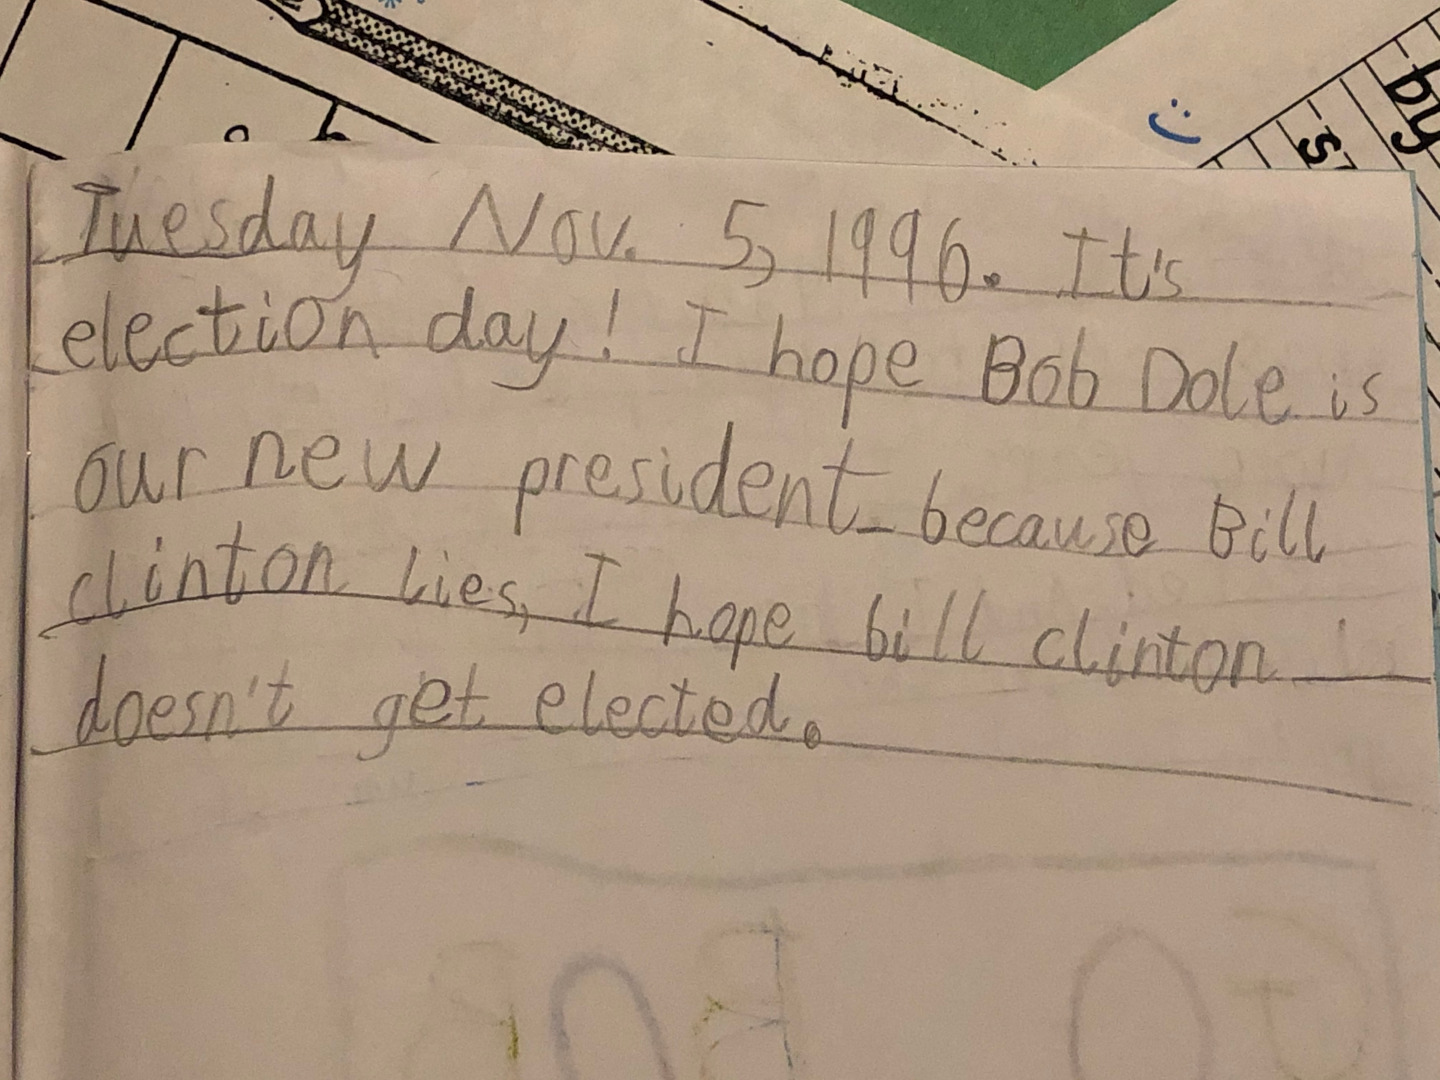 by
s
Tuesday Nov. 5, 1996. It's
election day! I hope Bob Dole is
our new president because Bill
clinton lies, I hope bill clinton
doesn't get elected.